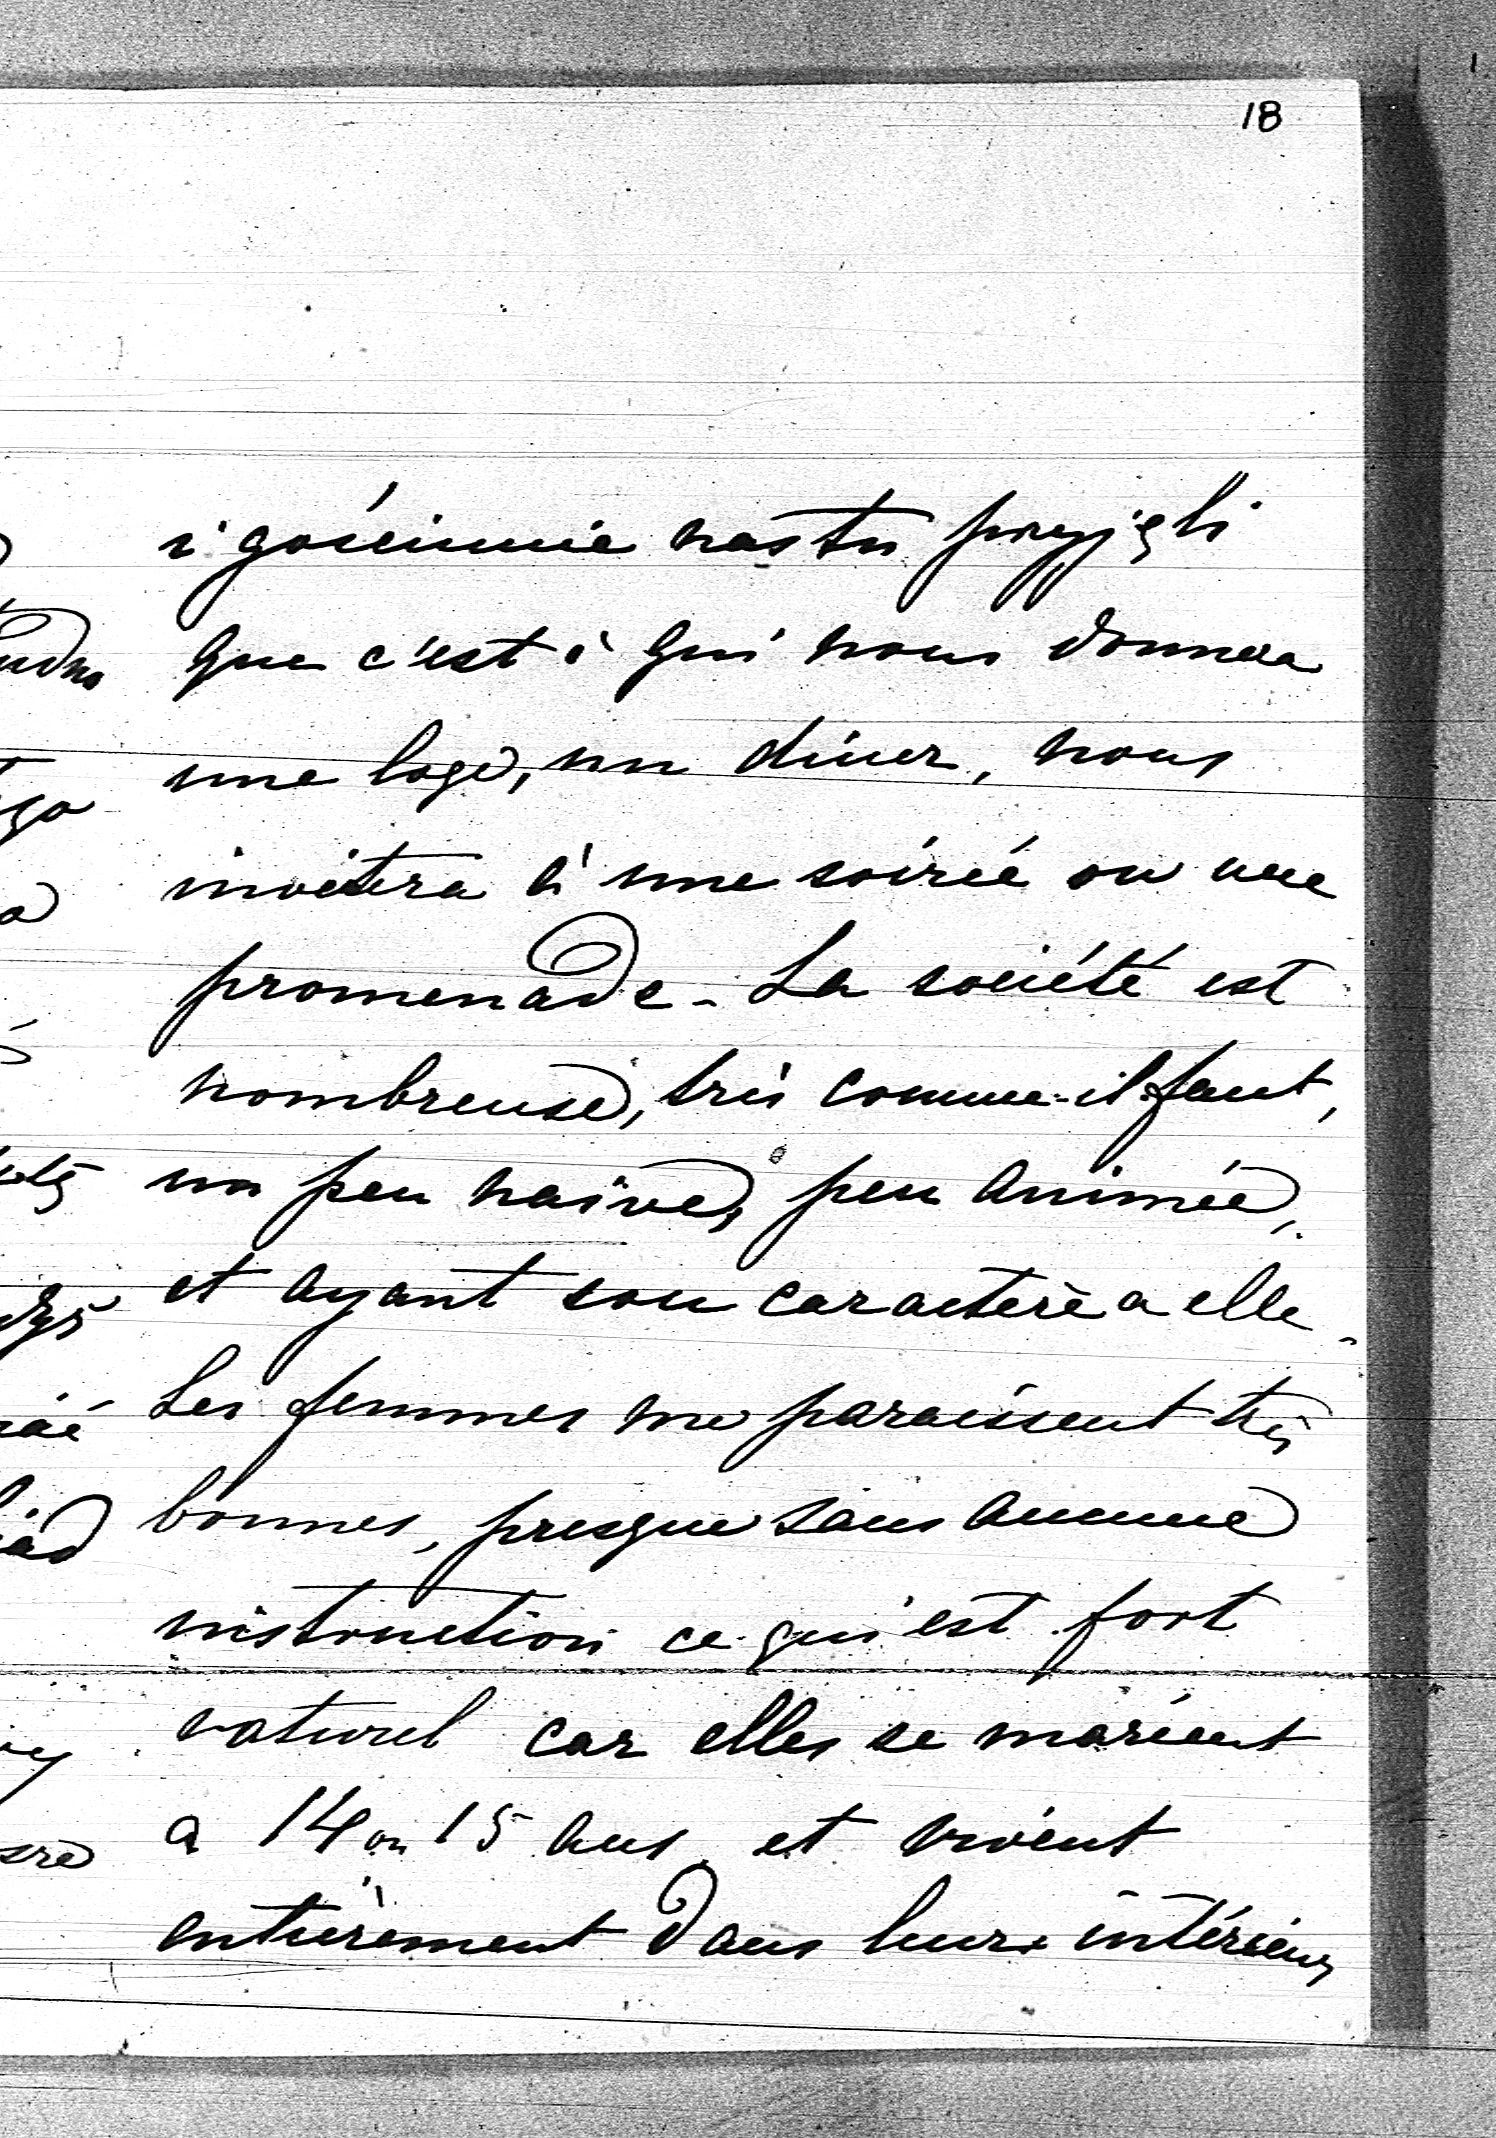 18
i gościnnie nas tu przyjęli
que c'est à qui nous donnera
une loge, un diner, nous
invitera à une soirée ou une
promenade. La société est
nombreuse, très comme-il faut,
un peu naïve, peu animée,
et ayant son caractère a elle.
Les femmes me paraissent très
bonnes, presque sans aucune
instruction ce qui est fort
naturel car elles se marient
a 14 ou 15 ans et vivent
entièrement dans leurs intérieurs